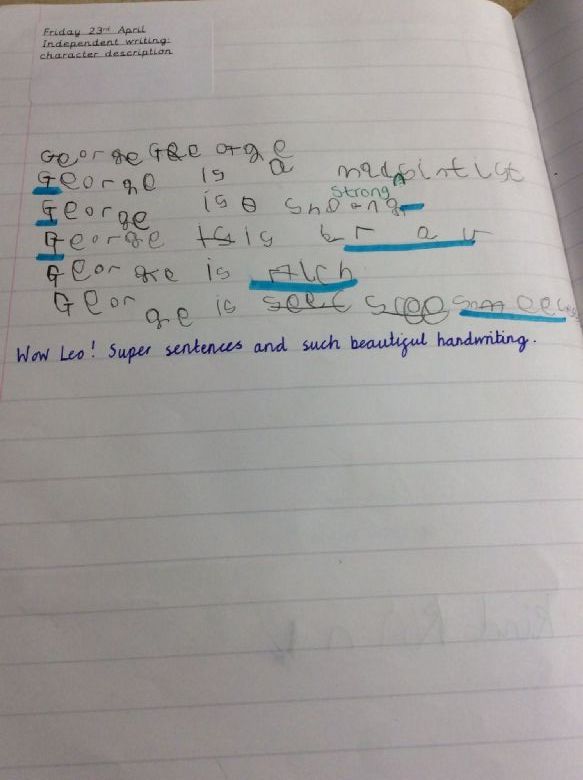 Friday 23rd April
Independent writing:
character description
George George
George is a
Strong
George is a
George is brav
George is rich
George is
Wow Leo! Super sentences and such beautiful handwriting.